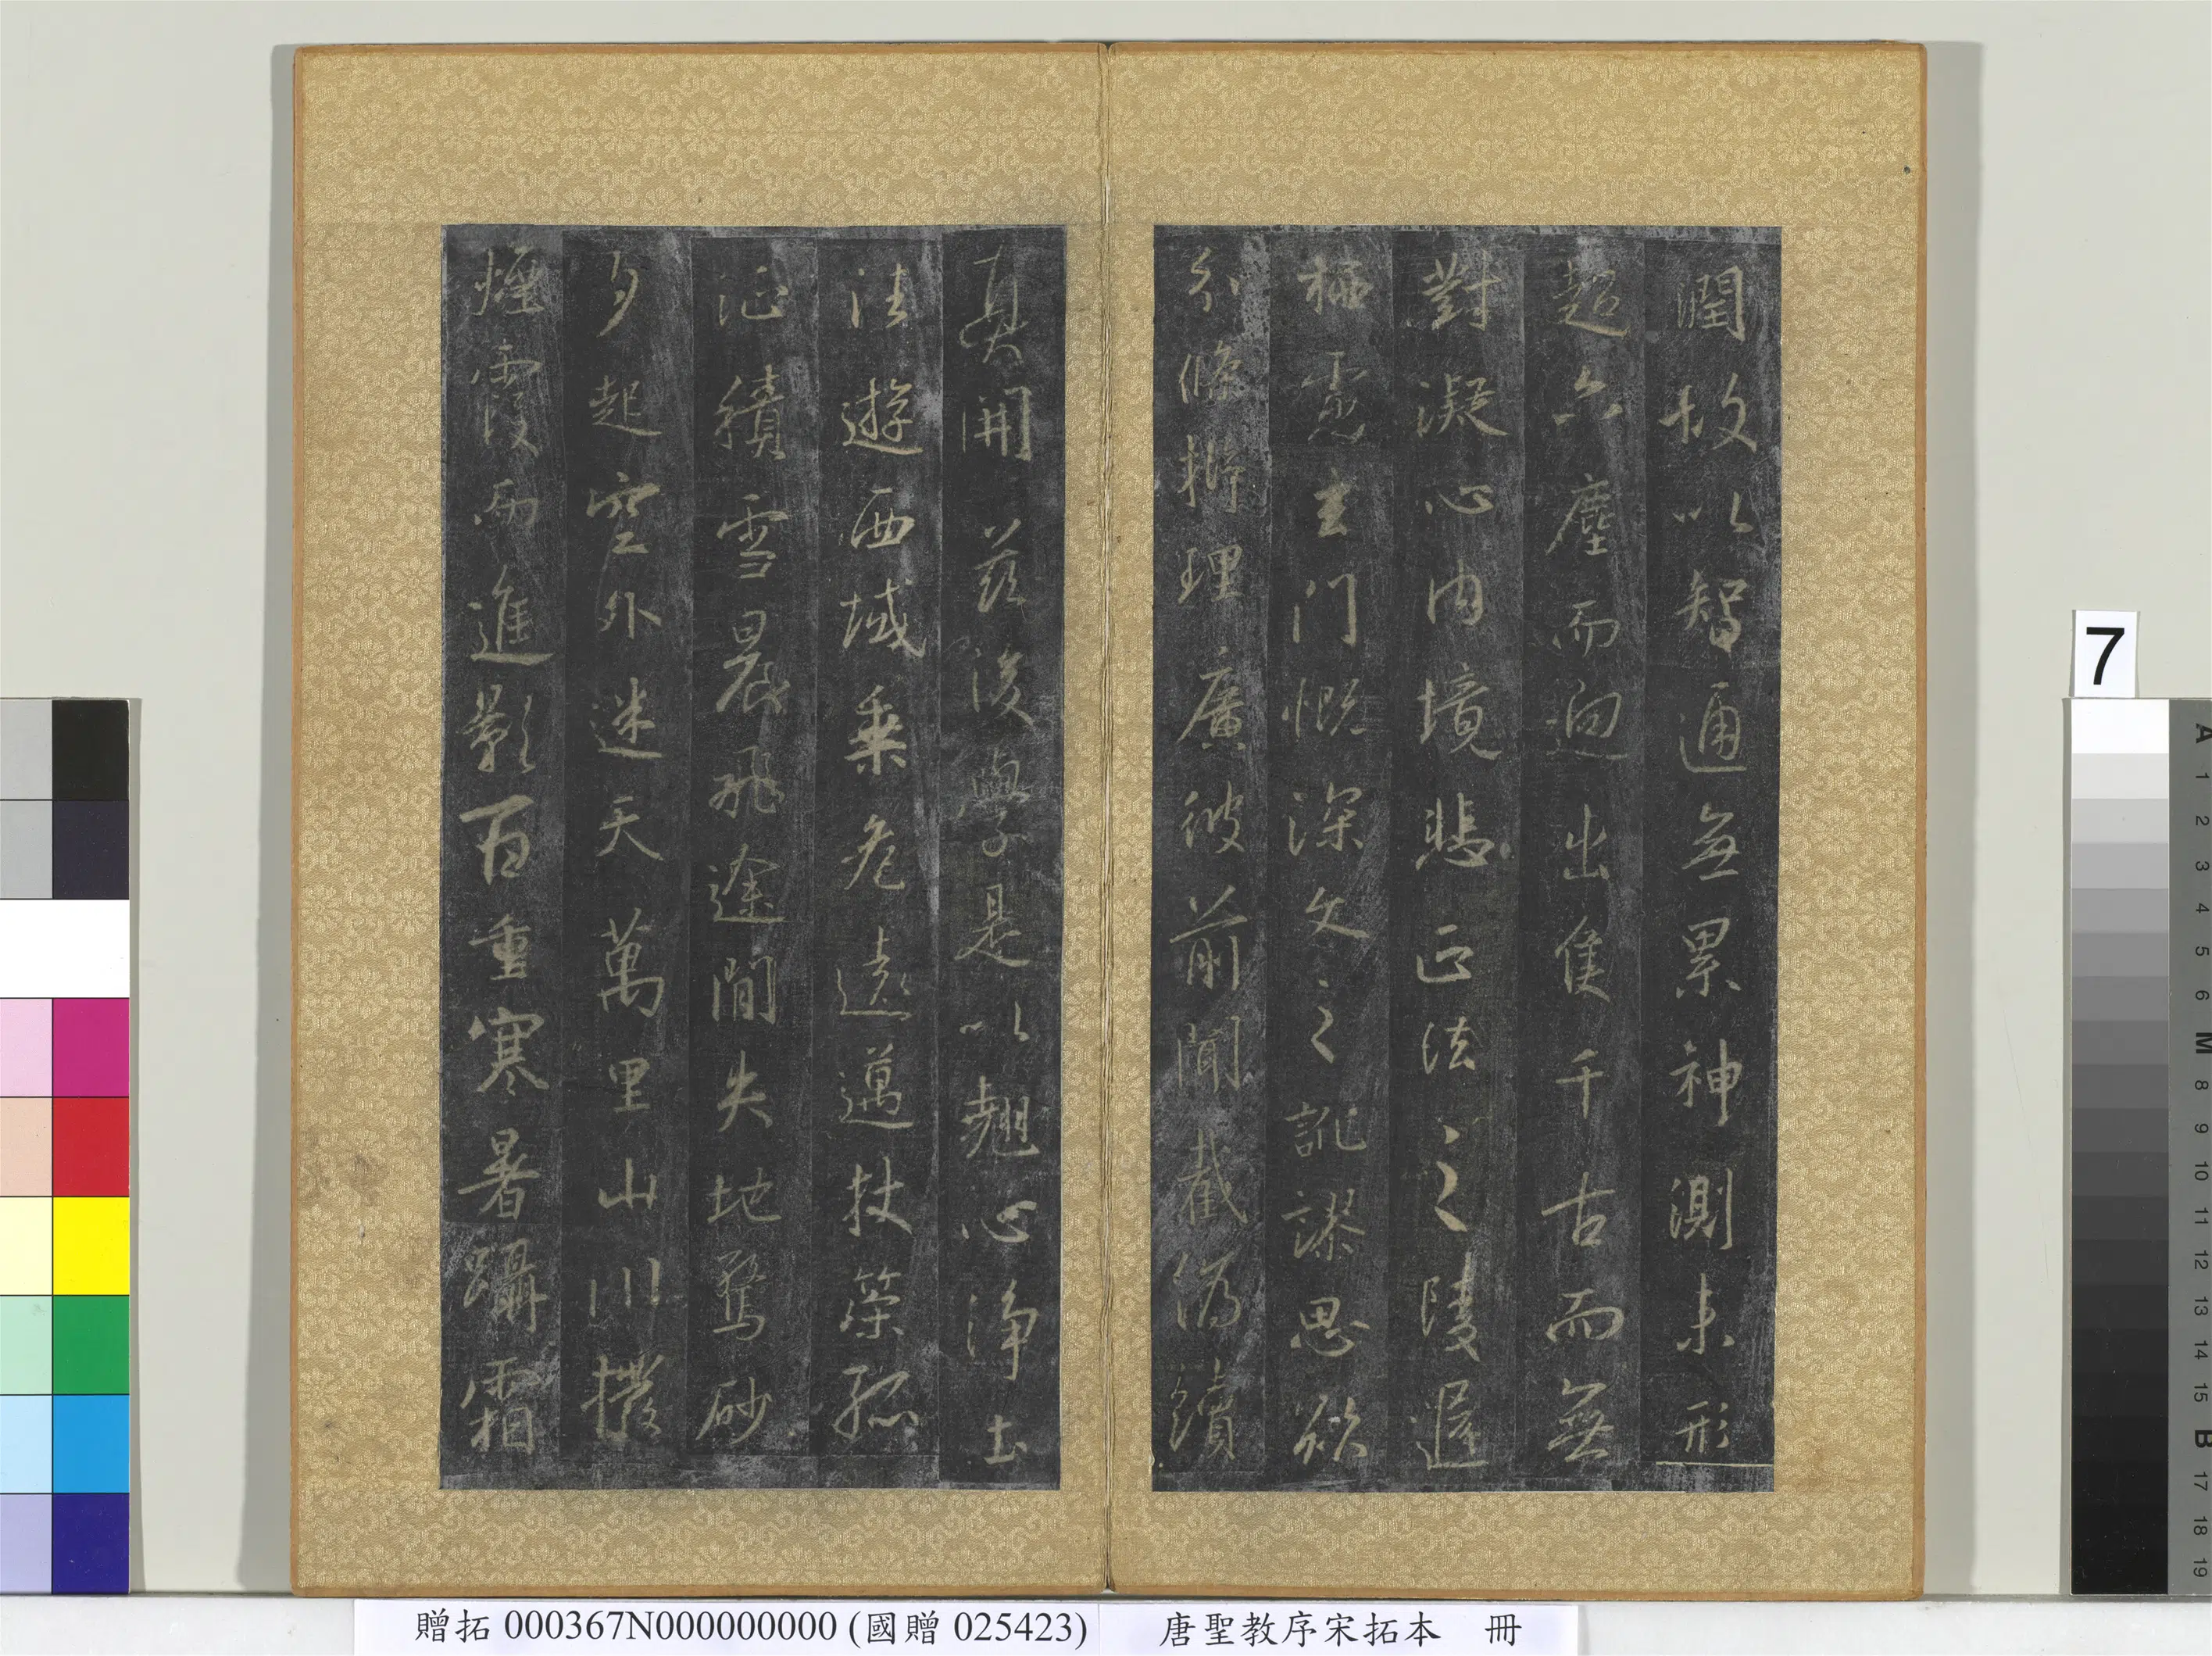 潤故以智通無累神測未形
超六塵而迥出隻千古而無
對凝心内境悲正法之陵遲
栖慮玄門慨深文之訛謬思欲
分條析理廣彼前聞截偽續
真開茲後學是以翹心淨土
法遊西域乘危遠邁杖策孤
征積雪晨飛途間失地驚砂
夕起空外迷天萬里山川撥
煙霞而進影百重寒暑躡霜
7
A 1 2 3 4 5 6 M 8 9 10 11 12 13 14 15 B 17 18 19
贈拓 000367N000000000 (國贈 025423) 唐聖教序宋拓本 冊